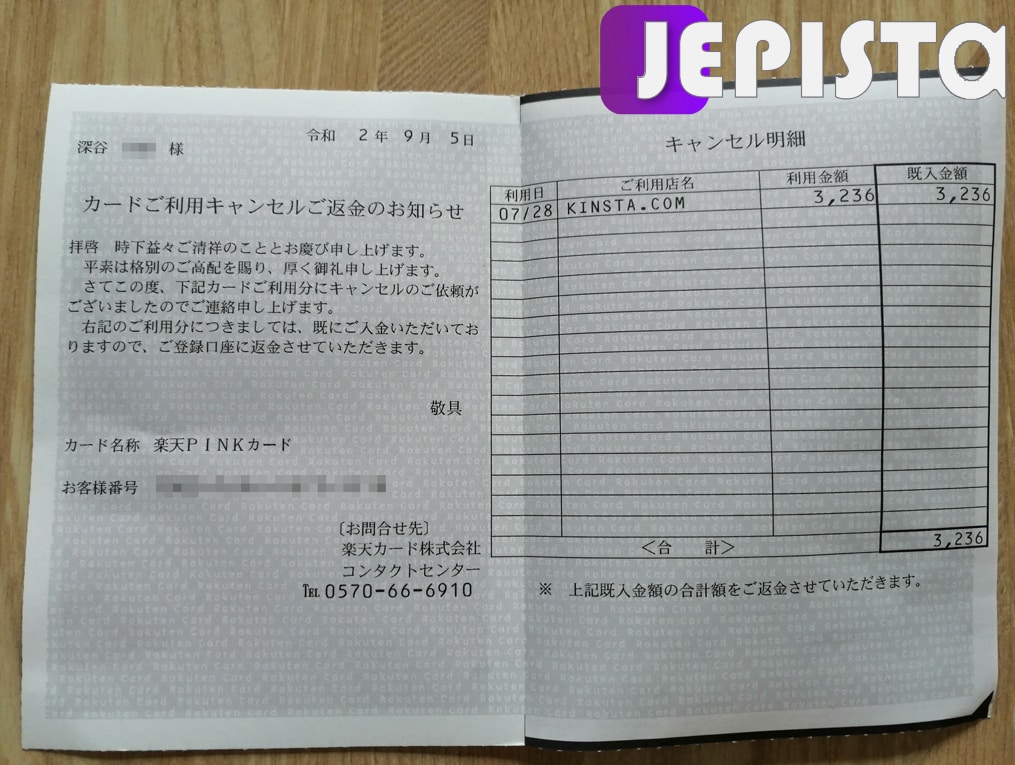 JEPISTA
令和 2年 9月 5日
深谷 様
カードご利用キャンセルご返金のお知らせ
拝啓 時下益々ご清祥のこととお慶び申し上げます。
平素は格別のご高配を賜り、厚く御礼申し上げます。
さてこの度、下記カードご利用分にキャンセルのご依頼が
ございましたのでご連絡申し上げます。
右記のご利用分につきましては、既にご入金いただいてお
りますので、ご登録口座に返金させていただきます。
敬具
カード名称 楽天PINKカード
お客様番号
〔お問合せ先〕
楽天カード株式会社
コンタクトセンター
TEL 0570-66-6910
キャンセル明細
利用日 ご利用店名 利用金額 既入金額
07/28 KINSTA.COM 3,236 3,236
<合 計> 3,236
※ 上記既入金額の合計額をご返金させていただきます。